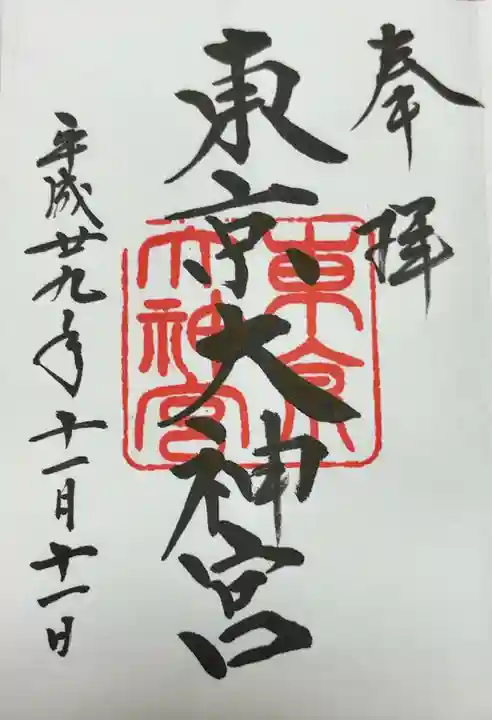 奉拝
東京大神宮
東京
大神宮
平成廿九年十一月十一日